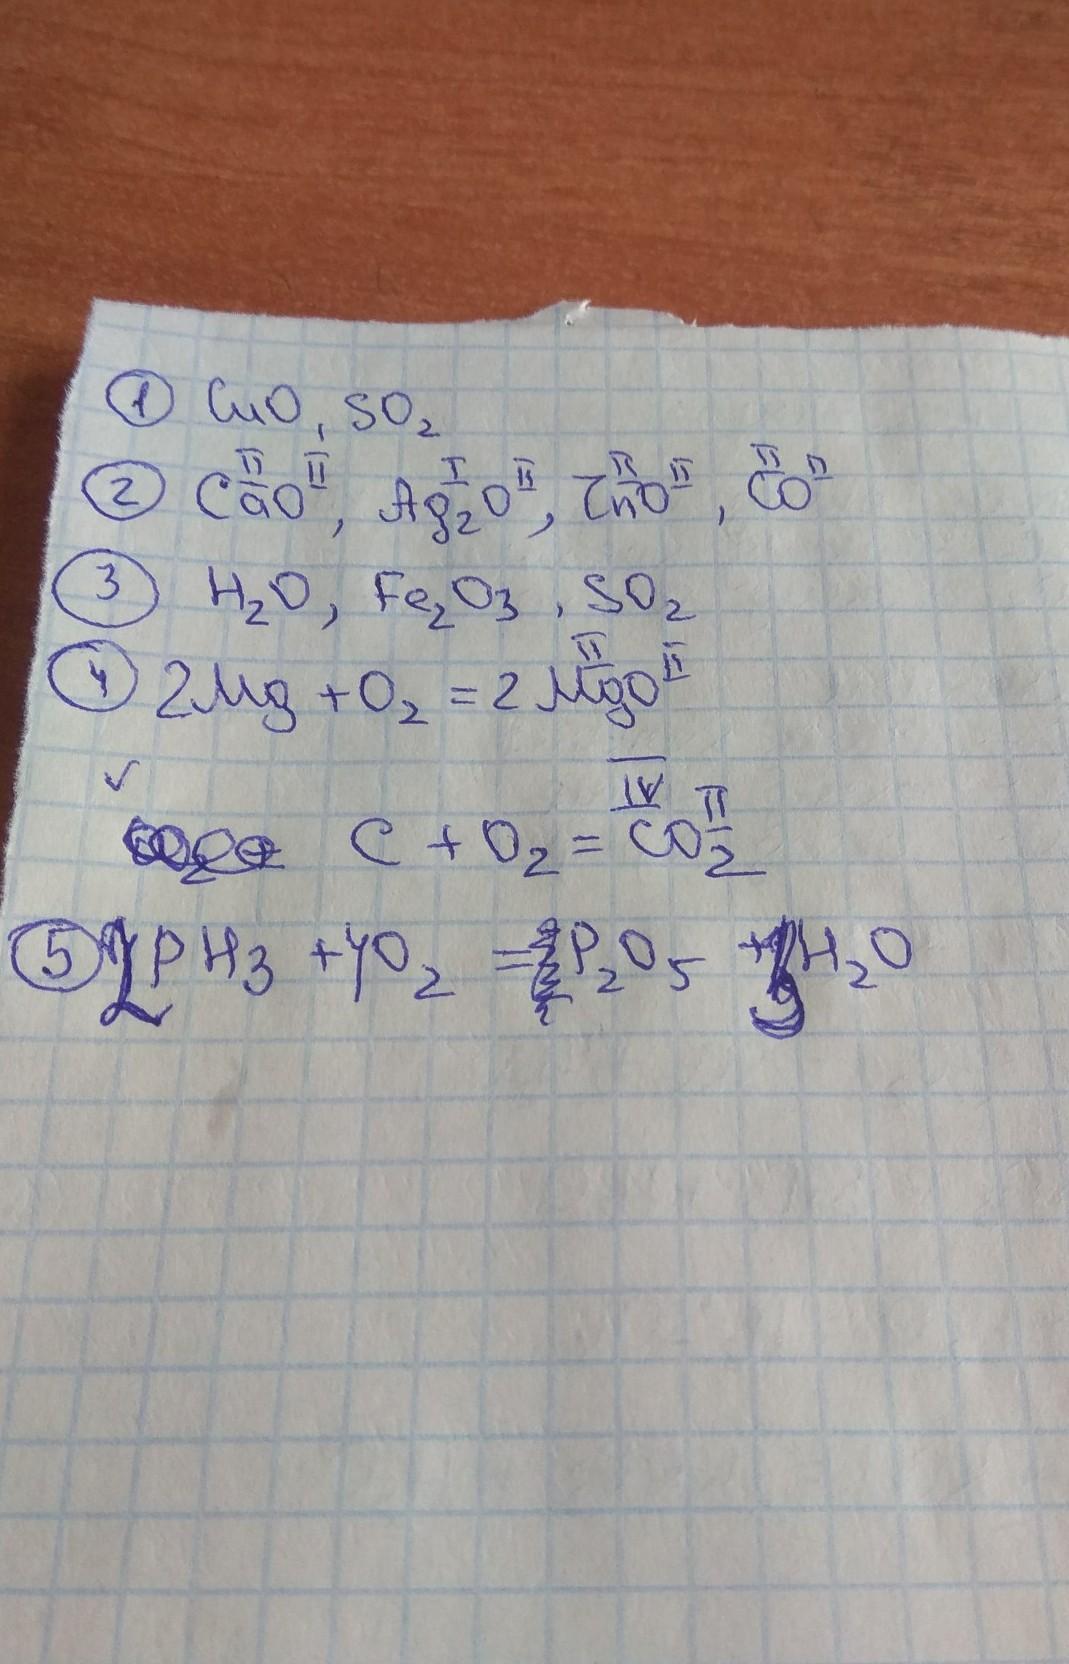 ① CuO, SO₂
② Ca^II O^II, Ag₂^I O^II, Zn^II O^II, C^II O^II
③ H₂O, Fe₂O₃, SO₂
④ 2Mg + O₂ = 2Mg^II O^II
✓
C + O₂ = C^IV O₂^II
⑤ 2PH₃ + 4O₂ = P₂O₅ + 3H₂O